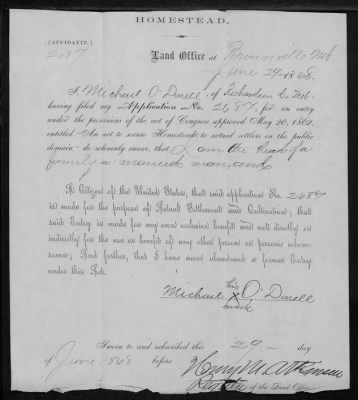 HOMESTEAD.
(AFFIDAVIT.)
2687
Land Office at Brownville Neb
June 29 1868.
I, Michael O'Donell, of Richardson Co Neb.
having filed my Application No. 2687, for an entry
under the provisions of the act of Congress approved May 20, 1862,
entitled "An act to secure Homesteads to actual settlers on the public
domain," do solemnly swear, that I am the head of a
family a married man, and
A Citizen of the United States, that said application No. 2687
is made for the purpose of Actual Settlement and Cultivation; that
said Entry is made for my own exclusive benefit and not directly or
indirectly for the use or benefit of any other person or persons whom-
soever; And further, that I have never abandoned a former Entry
under this Act.
his
Michael X O'Donell
mark
Sworn to and subscribed this 29 day
of June 1868 before Henry M Atkinson
Register of the Land Office